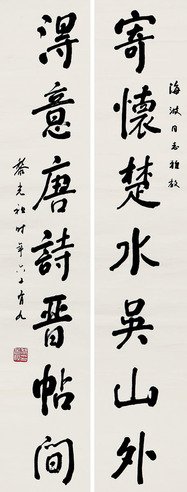 海波同志雅教
寄懷楚水吳山外
得意唐詩晉帖間
黎光祖时年六十有九